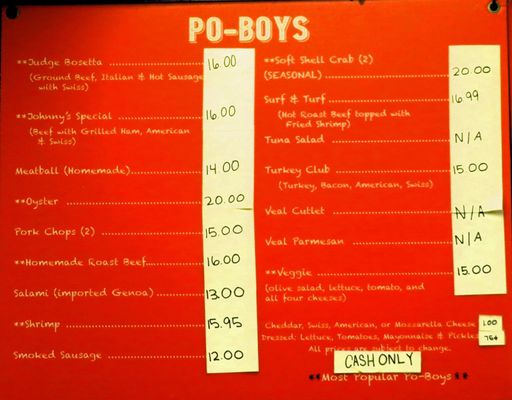 PO-BOYS
**Judge Bosetta ........ 16.00
(Ground Beef, Italian & Hot Sausage
with Swiss)
**Johnny's Special ........ 16.00
(Beef with Grilled Ham, American
& Swiss)
Meatball (Homemade)........ 14.00
**Oyster ........ 20.00
Pork Chops (2) ........ 15.00
**Homemade Roast Beef........ 16.00
Salami (imported Genoa) ........ 13.00
**Shrimp ........ 15.95
Smoked Sausage ........ 12.00
**Soft Shell Crab (2)
(SEASONAL) ........ 20.00
Surf & Turf ........ 16.99
(Hot Roast Beef topped with
Fried Shrimp)
Tuna Salad ........ N/A
Turkey Club ........ 15.00
(Turkey, Bacon, American, Swiss)
Veal Cutlet ........ N/A
Veal Parmesan ........ N/A
**Veggie ........ 15.00
(olive salad, lettuce, tomato, and
all four cheeses)
Cheddar, Swiss, American, or Mozzarella Cheese 1.00
Dressed: Lettuce, Tomatoes, Mayonnaise & Pickles 75¢
All prices are subject to change.
CASH ONLY
**Most Popular Po-Boys **